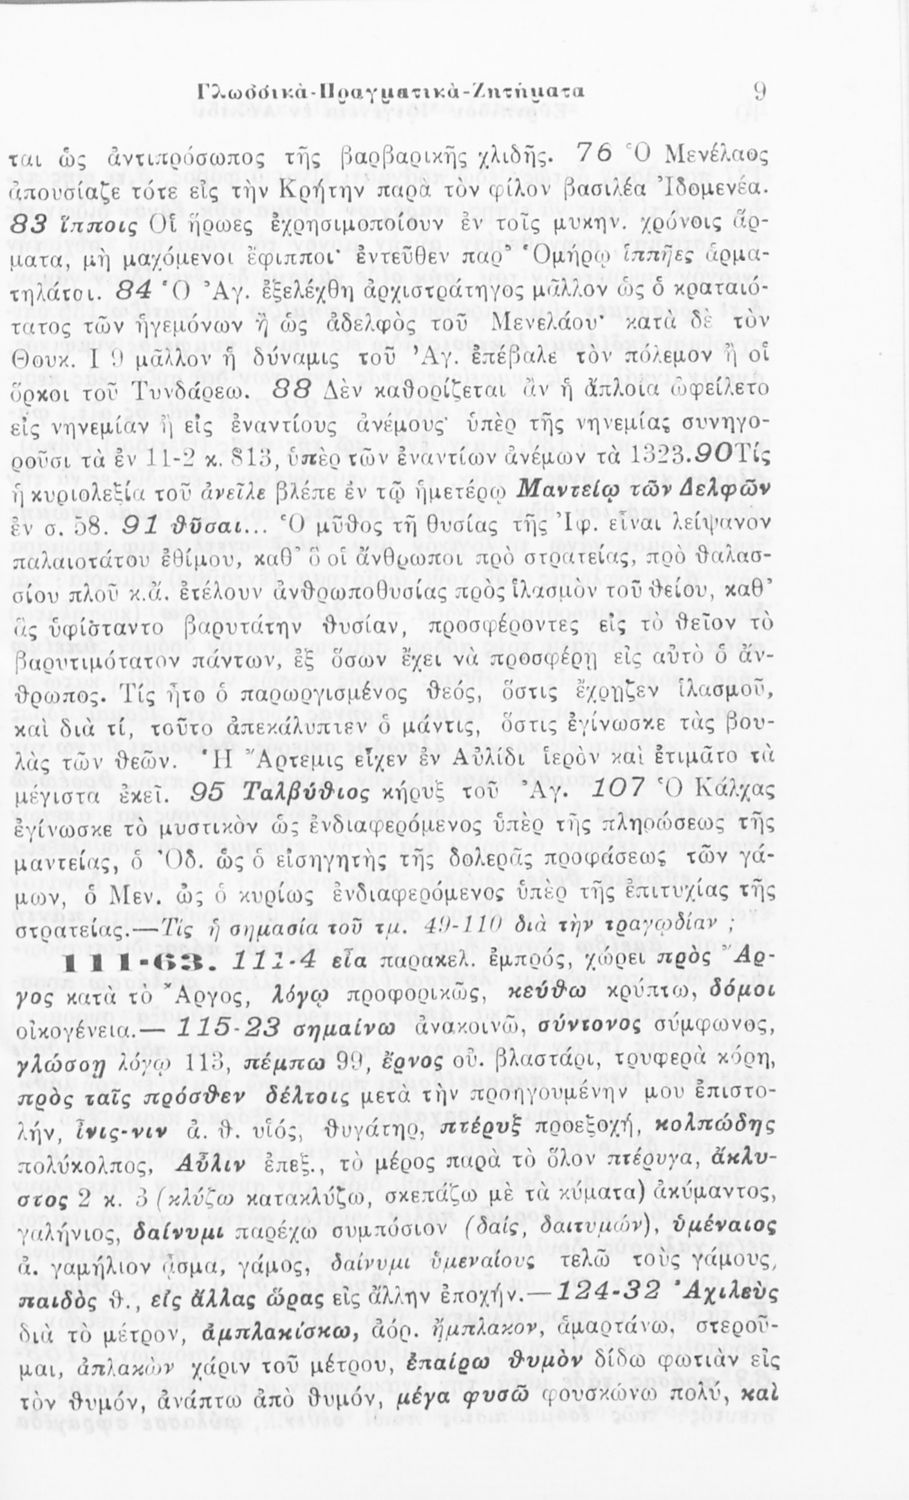 Γλωσσικὰ-Πραγματικὰ-Ζητήματα 9
ται ὡς ἀντιπρόσωπος τῆς βαρβαρικῆς χλιδῆς. 76 Ὁ Μενέλαος
ἀπουσίαζε τότε εἰς τὴν Κρήτην παρὰ τὸν φίλον βασιλέα Ἰδομενέα.
83 ἵπποις Οἱ ἥρωες ἐχρησιμοποίουν ἐν τοῖς μυκην. χρόνοις ἅρ-
ματα, μὴ μαχόμενοι ἔφιπποι· ἐντεῦθεν παρ' Ὁμήρῳ ἱππῆες ἁρμα-
τηλάτοι. 84 Ὁ Ἀγ. ἐξελέχθη ἀρχιστράτηγος μᾶλλον ὡς ὁ κραταιό-
τατος τῶν ἡγεμόνων ἢ ὡς ἀδελφὸς τοῦ Μενελάου· κατὰ δὲ τὸν
Θουκ. Ι 9 μᾶλλον ἡ δύναμις τοῦ Ἀγ. ἐπέβαλε τὸν πόλεμον ἢ οἱ
ὅρκοι τοῦ Τυνδάρεω. 88 Δὲν καθορίζεται ἂν ἡ ἄπλοια ὠφείλετο
εἰς νηνεμίαν ἢ εἰς ἐναντίους ἀνέμους· ὑπὲρ τῆς νηνεμίας συνηγο-
ροῦσι τὰ ἐν 11-2 κ. 813, ὑπὲρ τῶν ἐναντίων ἀνέμων τὰ 1323. 90 Τίς
ἡ κυριολεξία τοῦ ἀνεῖλε βλέπε ἐν τῷ ἡμετέρῳ Μαντείῳ τῶν Δελφῶν
ἐν σ. 58. 91 θῦσαι... Ὁ μῦθος τῆ θυσίας τῆς Ἰφ. εἶναι λείψανον
παλαιοτάτου ἐθίμου, καθ' ὃ οἱ ἄνθρωποι πρὸ στρατείας, πρὸ θαλασ-
σίου πλοῦ κ.ἄ. ἐτέλουν ἀνθρωποθυσίας πρὸς ἱλασμὸν τοῦ θείου, καθ'
ἃς ὑφίσταντο βαρυτάτην θυσίαν, προσφέροντες εἰς τὸ θεῖον τὸ
βαρυτιμότατον πάντων, ἐξ ὅσων ἔχει νὰ προσφέρῃ εἰς αὐτὸ ὁ ἄν-
θρωπος. Τίς ἦτο ὁ παρωργισμένος θεός, ὅστις ἔχρῃζεν ἱλασμοῦ,
καὶ διὰ τί, τοῦτο ἀπεκάλυπτεν ὁ μάντις, ὅστις ἐγίνωσκε τὰς βου-
λὰς τῶν θεῶν. Ἡ Ἄρτεμις εἶχεν ἐν Αὐλίδι ἱερὸν καὶ ἐτιμᾶτο τὰ
μέγιστα ἐκεῖ. 95 Ταλβύθιος κῆρυξ τοῦ Ἀγ. 107 Ὁ Κάλχας
ἐγίνωσκε τὸ μυστικὸν ὡς ἐνδιαφερόμενος ὑπὲρ τῆς πληρώσεως τῆς
μαντείας, ὁ Ὀδ. ὡς ὁ εἰσηγητὴς τῆς δολερᾶς προφάσεως τῶν γά-
μων, ὁ Μεν. ὡς ὁ κυρίως ἐνδιαφερόμενος ὑπὲρ τῆς ἐπιτυχίας τῆς
στρατείας.—Τίς ἡ σημασία τοῦ τμ. 49-110 διὰ τὴν τραγῳδίαν ;
111-63. 111-4 εἶα παρακελ. ἐμπρός, χώρει πρὸς Ἄρ-
γος κατὰ τὸ Ἄργος, λόγῳ προφορικῶς, κεύθω κρύπτω, δόμοι
οἰκογένεια.— 115-23 σημαίνω ἀνακοινῶ, σύντονος σύμφωνος,
γλώσσῃ λόγῳ 113, πέμπω 99, ἔρνος οὐ. βλαστάρι, τρυφερὰ κόρη,
πρὸς ταῖς πρόσθεν δέλτοις μετὰ τὴν προηγουμένην μου ἐπιστο-
λήν, ἶνις-νιν ἀ. θ. υἱός, θυγάτηρ, πτέρυξ προεξοχή, κολπώδης
πολύκολπος, Αὖλιν ἐπεξ., τὸ μέρος παρὰ τὸ ὅλον πτέρυγα, ἄκλυ-
στος 2 κ. 3 (κλύζω κατακλύζω, σκεπάζω μὲ τὰ κύματα) ἀκύμαντος,
γαλήνιος, δαίνυμι παρέχω συμπόσιον (δαίς, δαιτυμών), ὑμέναιος
ἀ. γαμήλιον ᾆσμα, γάμος, δαίνυμι ὑμεναίους τελῶ τοὺς γάμους,
παιδὸς θ., εἰς ἄλλας ὥρας εἰς ἄλλην ἐποχήν.—124-32 Ἀχιλεὺς
διὰ τὸ μέτρον, ἀμπλακίσκω, ἀόρ. ἤμπλακον, ἁμαρτάνω, στεροῦ-
μαι, ἀπλακὼν χάριν τοῦ μέτρου, ἐπαίρω θυμὸν δίδω φωτιὰν εἰς
τὸν θυμόν, ἀνάπτω ἀπὸ θυμόν, μέγα φυσῶ φουσκώνω πολύ, καὶ